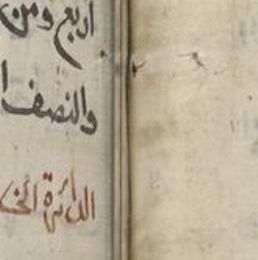 أربع ومن
والنصف ا
الدائرة الخا